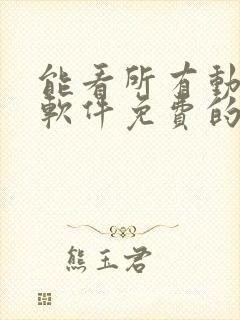 能看所有動
軟件免費的
熊玉君